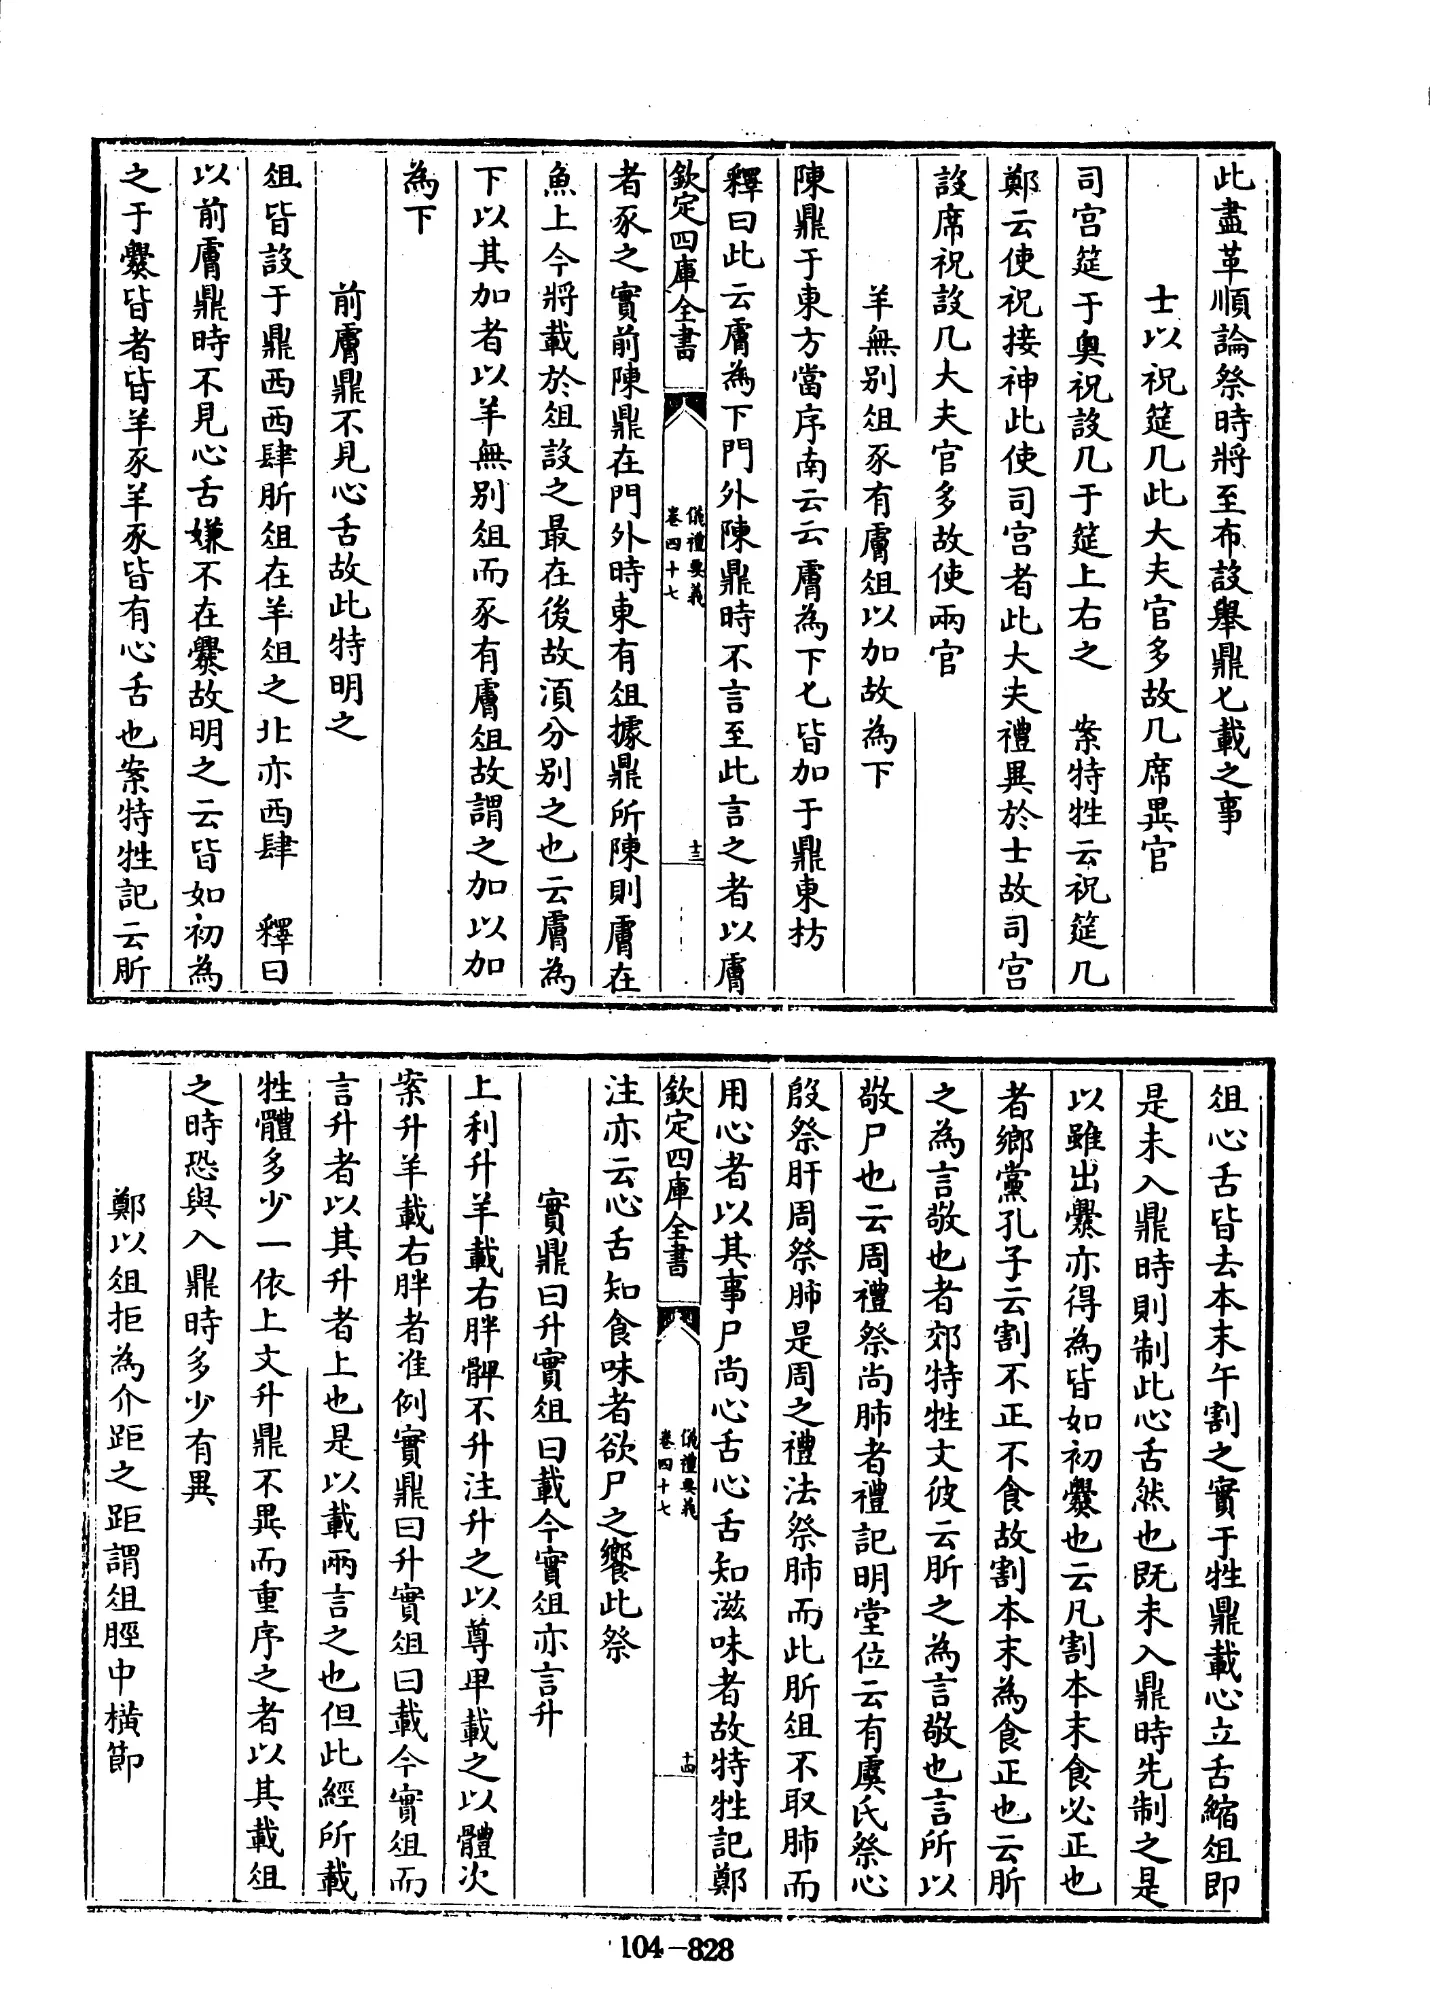 此盡革順論祭時將至布設舉鼎匕載之事
士以祝筵几此大夫官多故几席異官
司宫筵于奥祝設几于筵上右之　案特牲云祝筵几
鄭云使祝接神此使司宫者此大夫禮異於士故司宫
設席祝設几大夫官多故使兩官
羊無别俎豕有膚俎以加故為下
陳鼎于東方當序南云云膚為下匕皆加于鼎東枋
釋曰此云膚為下門外陳鼎時不言至此言之者以膚
欽定四庫全書
儀禮要義
卷四十七
十三
者豕之實前陳鼎在門外時東有俎據鼎所陳則膚在
魚上今將載於俎設之最在後故湏分别之也云膚為
下以其加者以羊無别俎而豕有膚俎故謂之加以加
為下
前膚鼎不見心舌故此特明之
俎皆設于鼎西西肆肵俎在羊俎之北亦西肆　釋曰
以前膚鼎時不見心舌嫌不在爨故明之云皆如初為
之于爨皆者皆羊豕羊豕皆有心舌也案特牲記云肵
俎心舌皆去本末午割之實于牲鼎載心立舌縮俎即
是未入鼎時則制此心舌然也既未入鼎時先制之是
以雖出爨亦得為皆如初爨也云凡割本末食必正也
者鄉黨孔子云割不正不食故割本末為食正也云肵
之為言敬也者郊特牲文彼云肵之為言敬也言所以
敬尸也云周禮祭尚肺者禮記明堂位云有虞氏祭心
殷祭肝周祭肺是周之禮法祭肺而此肵俎不取肺而
用心者以其事尸尚心舌心舌知滋味者故特牲記鄭
欽定四庫全書
儀禮要義
卷四十七
十四
注亦云心舌知食味者欲尸之饗此祭
實鼎曰升實俎曰載今實俎亦言升
上利升羊載右胖髀不升注升之以尊卑載之以體次
案升羊載右胖者准例實鼎曰升實俎曰載今實俎而
言升者以其升者上也是以載兩言之也但此經所載
牲體多少一依上文升鼎不異而重序之者以其載俎
之時恐與入鼎時多少有異
鄭以俎拒為介距之距謂俎脛中橫節
104-828